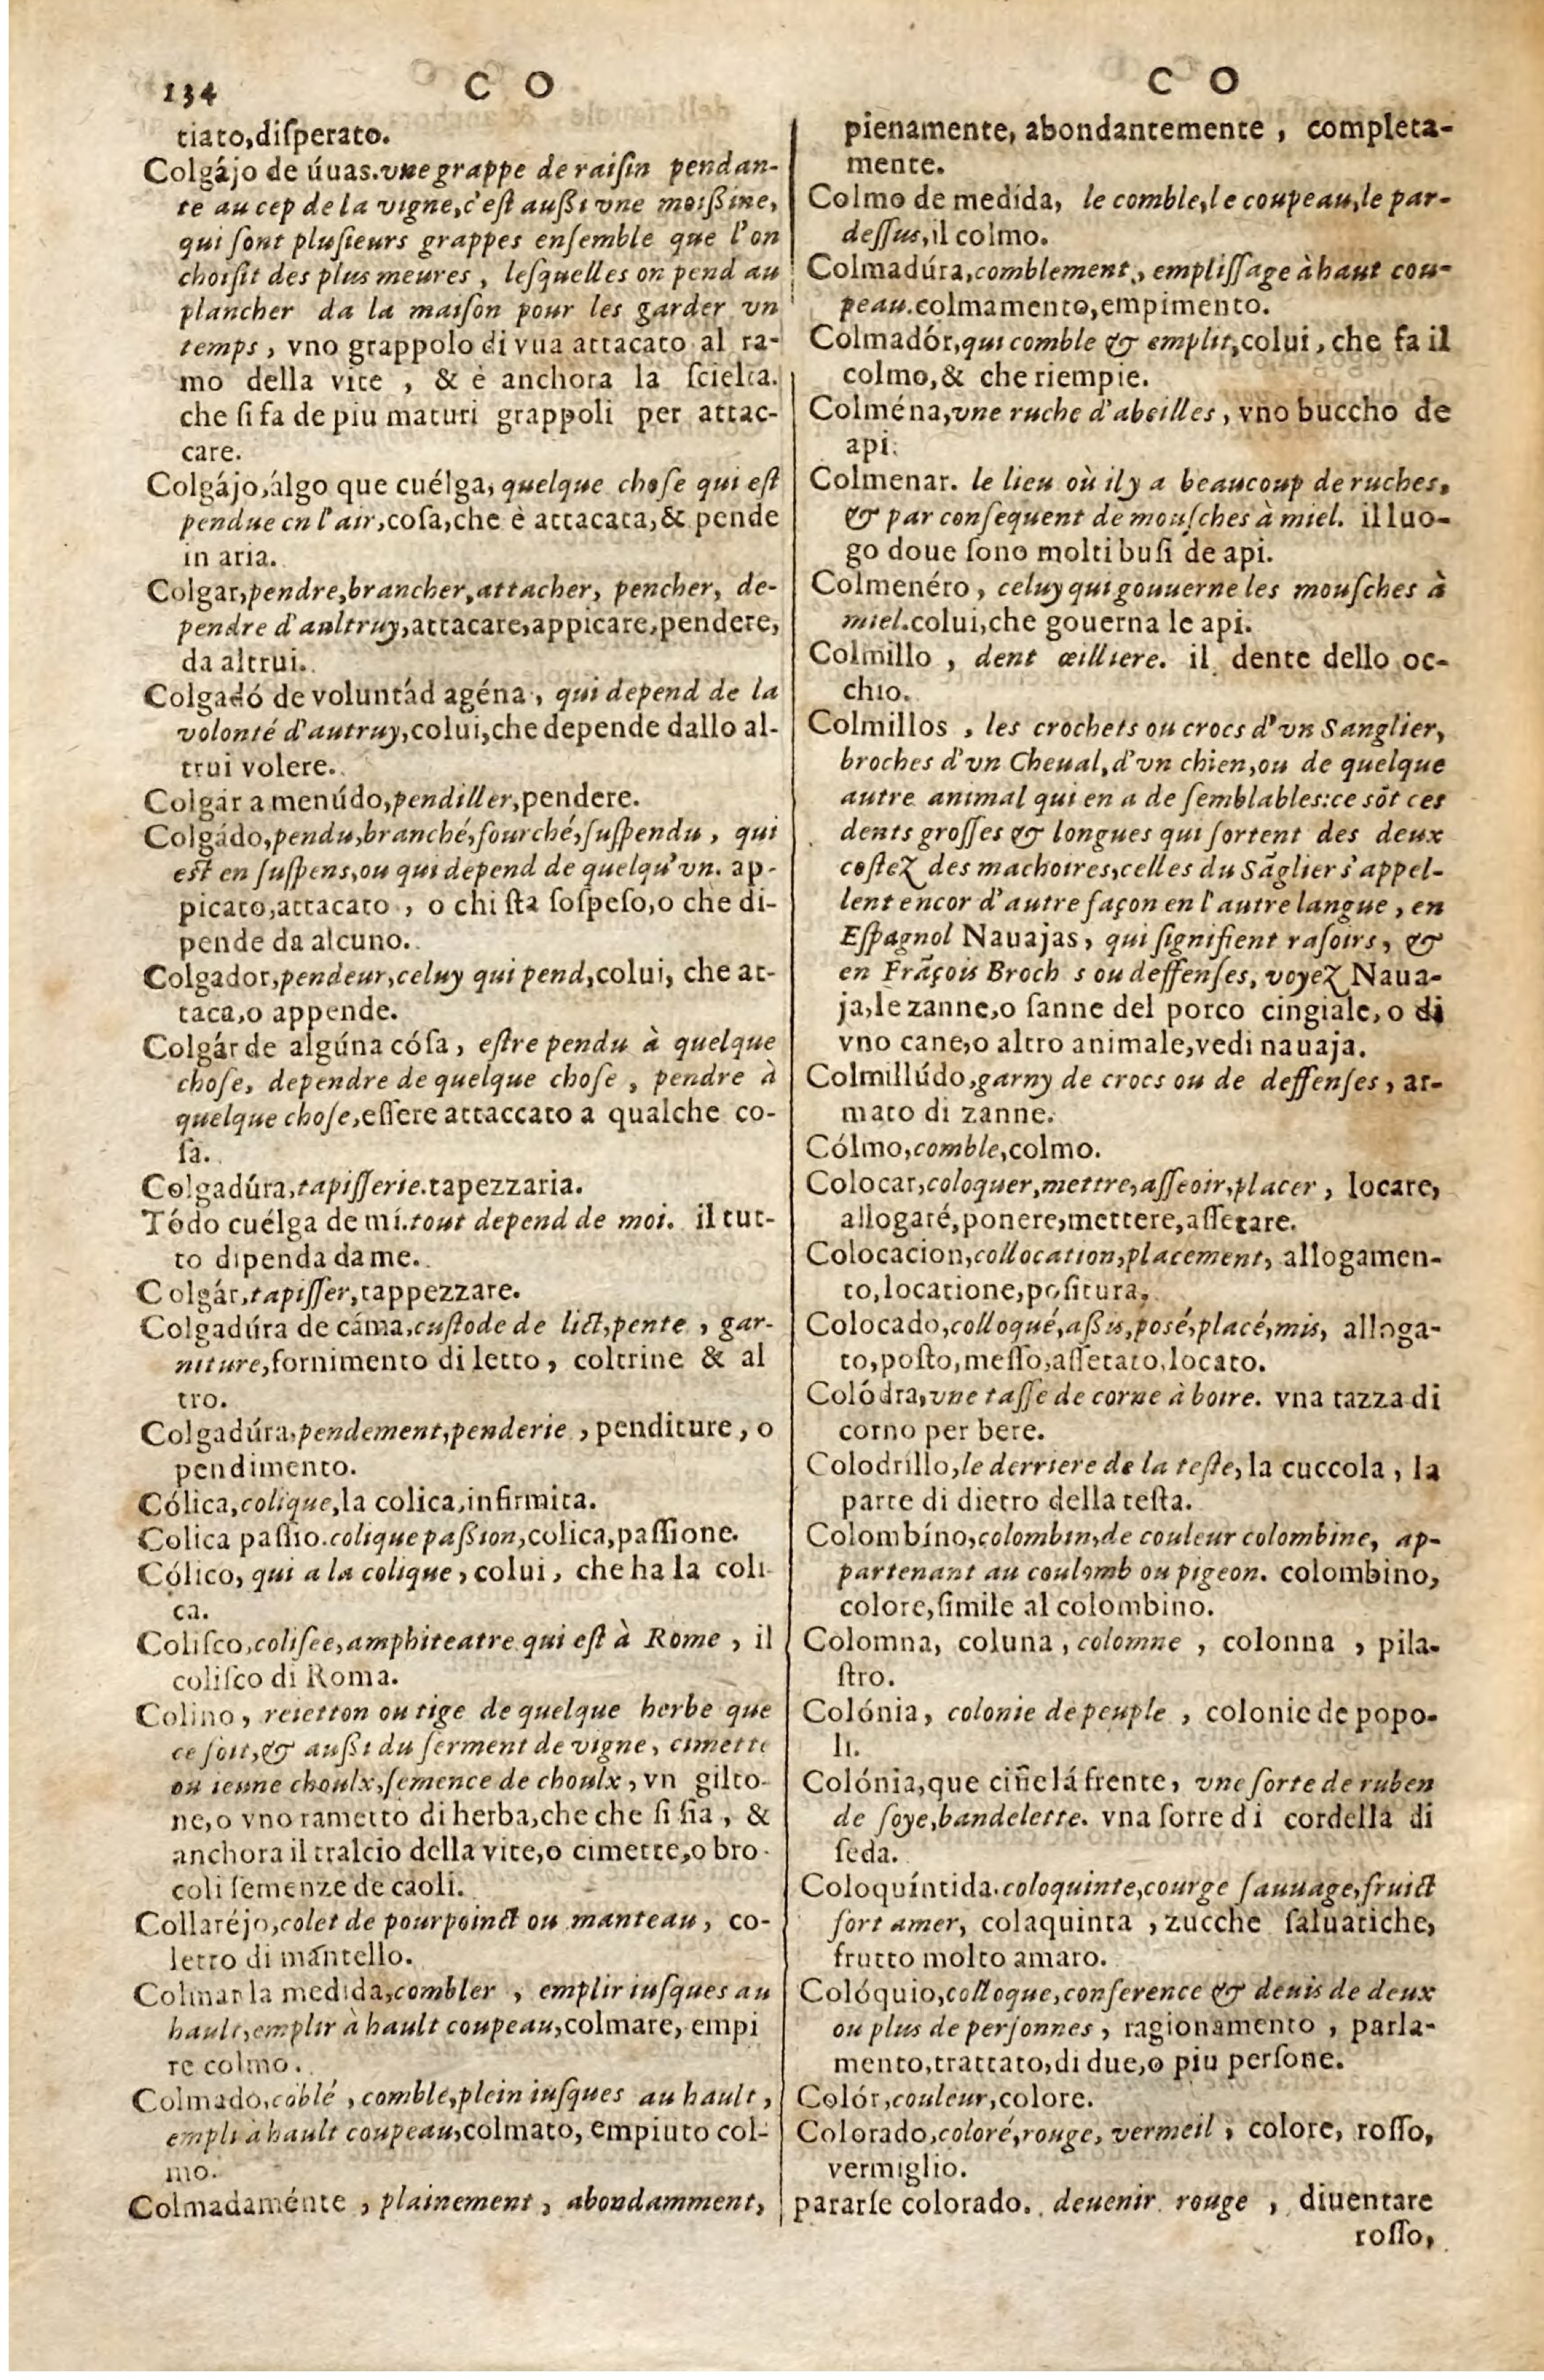 134 C O
tiato,diſperato.
Colgájo de úuas.vne grappe de raiſin pendan-
te au cep de la vigne,c'eſt außi vne moißine,
qui ſont pluſieurs grappes enſemble que l'on
choiſit des plus meures, leſquelles on pend au
plancher da la maiſon pour les garder vn
temps, vno grappolo di vua attacato al ra-
mo della vite, & è anchora la ſcielta.
che ſi fa de piu maturi grappoli per attac-
care.
Colgájo,álgo que cuélga, quelque choſe qui eſt
pendue en l'air,coſa,che è attacata,& pende
in aria.
Colgar,pendre,brancher,attacher, pencher, de-
pendre d'aultruy,attacare,appicare,pendere,
da altrui.
Colgadó de voluntád agéna, qui depend de la
volonté d'autruy,colui,che depende dallo al-
trui volere.
Colgár a menúdo,pendiller,pendere.
Colgádo,pendu,branché,fourché,ſuſpendu, qui
est en ſuſpens,ou qui depend de quelqu'vn. ap-
picato,attacato, o chi ſta ſoſpeſo,o che di-
pende da alcuno.
Colgador,pendeur,celuy qui pend,colui, che at-
taca,o appende.
Colgár de algúna cóſa, eſtre pendu à quelque
choſe, dependre de quelque choſe, pendre à
quelque choſe,eſſere attaccato a qualche co-
ſa.
Colgadúra,tapiſſerie.tapezzaria.
Tódo cuélga de mí.tout depend de moi. il tut-
to dipenda da me.
Colgár,tapiſſer,tappezzare.
Colgadúra de cáma,cuſtode de lict,pente, gar-
niture,fornimento di letto, coltrine & al
tro.
Colgadúra,pendement,penderie, penditure, o
pendimento.
Cólica,colique,la colica,infirmita.
Colica paſſio.colique paßion,colica,paſſione.
Cólico, qui a la colique, colui, che ha la coli
ca.
Coliſco,coliſee,amphiteatre qui eſt à Rome, il
coliſco di Roma.
Colino, reietton ou tige de quelque herbe que
ce ſoit,& außi du ſerment de vigne, cimette
ou ieune choulx,ſemence de choulx, vn gilto-
ne,o vno rametto di herba,che che ſi ſia, &
anchora il tralcio della vite,o cimette,o bro-
coli ſemenze de caoli.
Collaréjo,colet de pourpoinct ou manteau, co-
letto di mantello.
Colmar la medida,combler, emplir iuſques au
hault,emplir à hault coupeau,colmare, empi
re colmo.
Colmado,cōblé, comble,plein iuſques au hault,
empli à hault coupeau,colmato, empiuto col-
mo.
Colmadaménte, plainement, abondamment,
C O
pienamente, abondantemente, completa-
mente.
Colmo de medída, le comble,le coupeau,le par-
deſſus,il colmo.
Colmadúra,comblement, empliſſage à haut cou-
peau.colmamento,empimento.
Colmadór,qui comble & emplit,colui, che fa il
colmo,& che riempie.
Colména,vne ruche d'abeilles, vno buccho de
api.
Colmenar. le lieu où il y a beaucoup de ruches,
& par conſequent de mouſches à miel. il luo-
go doue ſono molti buſi de api.
Colmenéro, celuy qui gouuerne les mouſches à
miel.colui,che gouerna le api.
Colmillo, dent œilliere. il dente dello oc-
chio.
Colmillos, les crochets ou crocs d'vn Sanglier,
broches d'vn Cheual,d'vn chien,ou de quelque
autre animal qui en a de ſemblables:ce sōt ces
dents groſſes & longues qui ſortent des deux
coſtez des machoires,celles du Sāglier s'appel-
lent encor d'autre façon en l'autre langue, en
Eſpagnol Nauajas, qui ſignifient raſoirs, &
en Frāçois Broch s ou deffenſes, voyez Naua-
ja,le zanne,o ſanne del porco cingiale, o di
vno cane,o altro animale,vedi nauaja.
Colmillúdo,garny de crocs ou de deffenſes, ar-
mato di zanne.
Cólmo,comble,colmo.
Colocar,coloquer,mettre,aſſeoir,placer, locare,
allogaré,ponere,mettere,aſſetare.
Colocacion,collocation,placement, allogamen-
to,locatione,poſitura,
Colocado,colloqué,aßis,posé,placé,mis, alloga-
to,poſto,meſſo,aſſetato,locato.
Colódra,vne taſſe de corne à boire. vna tazza di
corno per bere.
Colodrillo,le derriere de la teſte, la cuccola, la
parte di dietro della teſta.
Colombíno,colombin,de couleur colombine, ap-
partenant au coulomb ou pigeon. colombino,
colore,ſimile al colombino.
Colomna, coluna, colomne, colonna, pila-
ſtro.
Colónia, colonie de peuple, colonie de popo-
li.
Colónia,que ciñe lá frente, vne ſorte de ruben
de ſoye,bandelette. vna ſorre di cordella di
ſeda.
Coloquíntida.coloquinte,courge ſauuage,fruict
fort amer, colaquinta, zucche ſaluatiche,
frutto molto amaro.
Colóquio,colloque,conference & deuis de deux
ou plus de perſonnes, ragionamento, parla-
mento,trattato,di due,o piu perſone.
Colór,couleur,colore.
Colorado,coloré,rouge, vermeil, colore, roſſo,
vermiglio.
pararſe colorado. deuenir rouge, diuentare
roſſo,